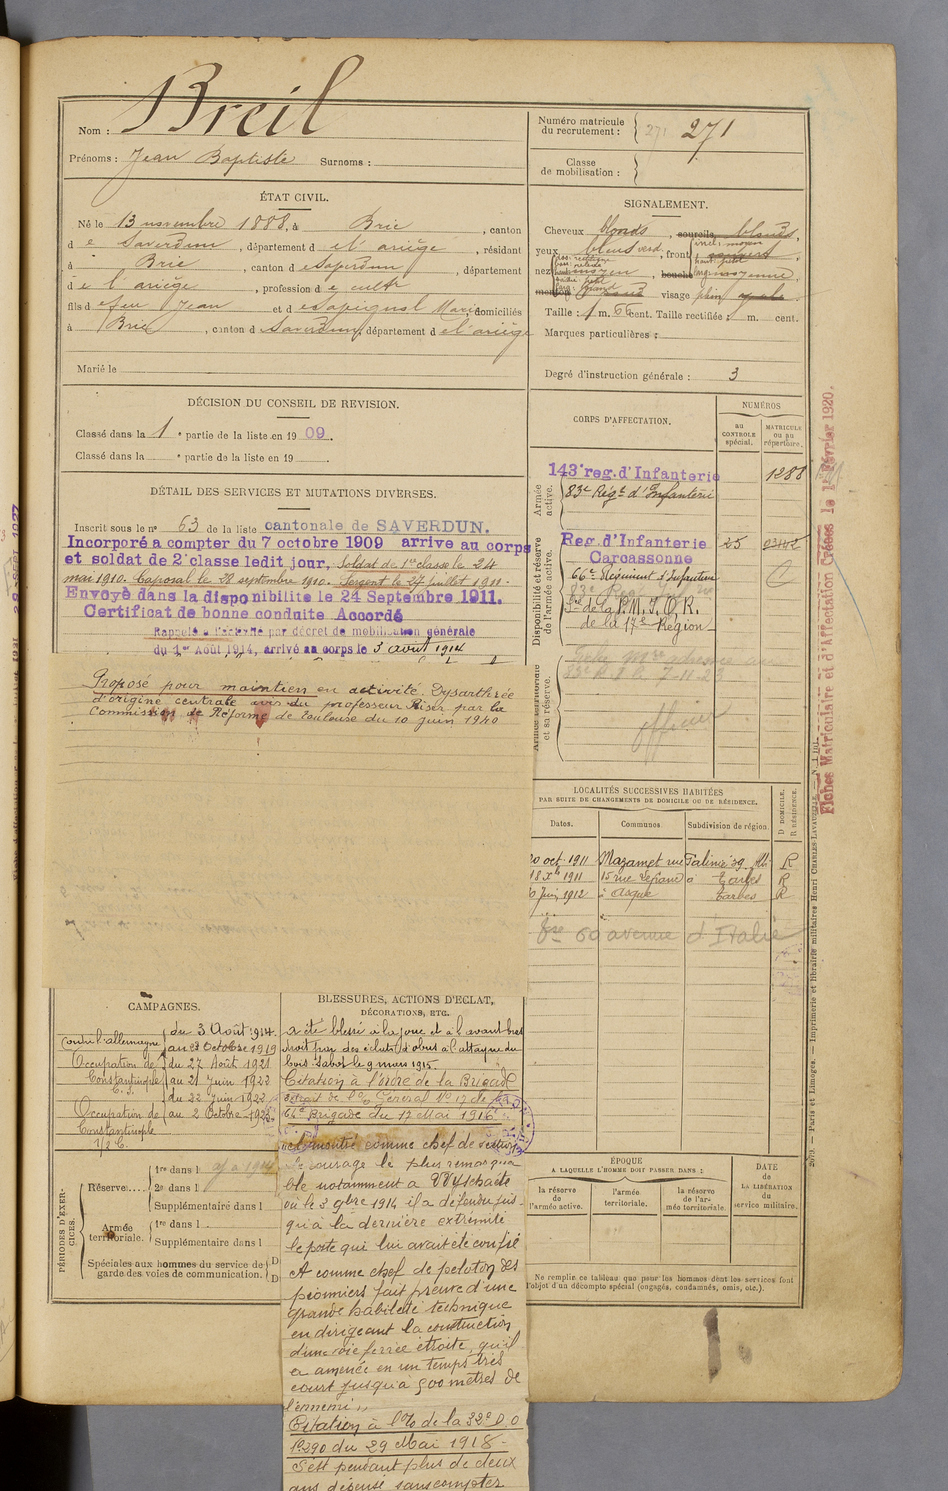 Nom : Breil
Prénoms : Jean Baptiste Surnoms :
Numéro matricule du recrutement : 271 271
Classe de mobilisation :
ÉTAT CIVIL.
Né le 13 novembre 1888, à Brie, canton
de Saverdun, département de l'ariège, résidant
à Brie, canton de Saverdun, département
de l'ariège, profession de cultr
fils de feu Jean et de Sapignol Marie domiciliés
à Brie, canton de Saverdun, département de l'ariège
Marié le
SIGNALEMENT.
Cheveux blonds, sourcils blonds,
yeux bleus verd, front
nez moyen, bouche moyenne,
menton visage plein
Taille : 1 m. 66 cent. Taille rectifiée : m. cent.
Marques particulières :
Degré d'instruction générale : 3
DÉCISION DU CONSEIL DE REVISION.
Classé dans la 1e partie de la liste en 1909.
Classé dans la e partie de la liste en 19
DÉTAIL DES SERVICES ET MUTATIONS DIVERSES.
Inscrit sous le no 63 de la liste cantonale de SAVERDUN.
Incorporé a compter du 7 octobre 1909 arrive au corps
et soldat de 2e classe ledit jour, Soldat de 1re classe le 24
mai 1910. Caporal le 28 septembre 1910. Sergent le 27 juillet 1911.
Envoyé dans la disponibilite le 24 Septembre 1911.
Certificat de bonne conduite Accordé
Rappelé à l'activité par décret de mobilisation générale
du 1er Août 1914, arrivé au corps le 3 août 1914
Proposé pour maintien en activité. Dysarthrée
d'origine centrale avis du professeur Riser par la
Commission de Réforme de Toulouse du 10 juin 1940
CORPS D'AFFECTATION.
NUMÉROS
AU CONTROLE SPÉCIAL.
MATRICULE OU AU RÉPERTOIRE.
Armée active.
143e reg. d'Infanterie 1288
83e Régt d'Infanterie
Disponibilité et réserve de l'armée active.
Reg. d'Infanterie 25
Carcassonne
66e Régiment d'Infanterie
de la P.M.I.O.R.
de la 17e Région
Armée territoriale et sa réserve.
83e R.I. le 7-11-23
officier
Fiches Matriculaire et d'Affectation Créées le Février 1920.
LOCALITÉS SUCCESSIVES HABITÉES
PAR SUITE DE CHANGEMENTS DE DOMICILE OU DE RÉSIDENCE.
Dates. Communes. Subdivision de région. D DOMICILE. R RÉSIDENCE.
20 oct. 1911 Mazamet rue Galinié 39 R
18 Xbre 1911 15 rue à Tarbes R
Juin 1912 à Asque Tarbes R
60 avenue d'Italie
CAMPAGNES.
Contre l'allemagne du 3 Août 1914
au Octobre 1919
Occupation de du 27 Août 1921
Constantinople au 21 Juin 1922
C.S. du 22 Juin 1922
Occupation de au 2 Octobre 1923
Constantinople
1/2 C.
BLESSURES, ACTIONS D'ECLAT,
DÉCORATIONS, ETC.
a été blessé à la joue et à l'avant bras
droit par des éclats d'obus à l'attaque du
bois Sabot le 9 mars 1915
Citation à l'ordre de la Brigade
extrait de l'o/ Général No 17 de la
64e Brigade du 12 Mai 1916
a montré comme chef de section
le courage le plus remarqua
ble notamment à Wytschaete
où le 3 9bre 1914 il a défendu jus
qu'à la dernière extrémité
le poste qui lui avait été confié
A comme chef de peloton des
pionniers fait preuve d'une
grande habileté technique
en dirigeant la construction
d'une voie ferrée étroite, qu'il
a amenée en un temps très
court jusqu'à 500 mètres de
l'ennemi"
Citation à l'o/ de la 32e D.
no 290 du 29 Mai 1918
S'est pendant plus de deux
ans dépensé sans compter
PÉRIODES D'EXERCICES.
Réserve.... 1re dans l
2e dans l
Supplémentaire dans l
Armée territoriale. 1re dans l
Supplémentaire dans l
Spéciales aux hommes du service de garde des voies de communication.
ÉPOQUE
A LAQUELLE L'HOMME DOIT PASSER DANS :
la réserve de l'armée active.
l'armée territoriale.
la réserve de l'armée territoriale.
DATE de LA LIBÉRATION du service militaire.
Ne remplir ce tableau que pour les hommes dont les services font
l'objet d'un décompte spécial (engagés, condamnés, omis, etc.).
Paris et Limoges. — Imprimerie et librairie militaires Henri CHARLES-LAVAUZELLE.